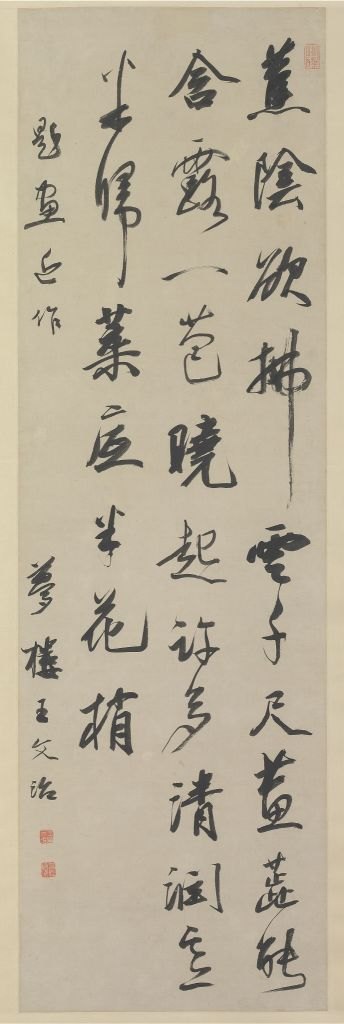 蕉陰欲拂雲千尺蕙蕊能
含露一苞曉起許多清潤意
半歸葉底半花梢
題畫近作 夢樓王文治